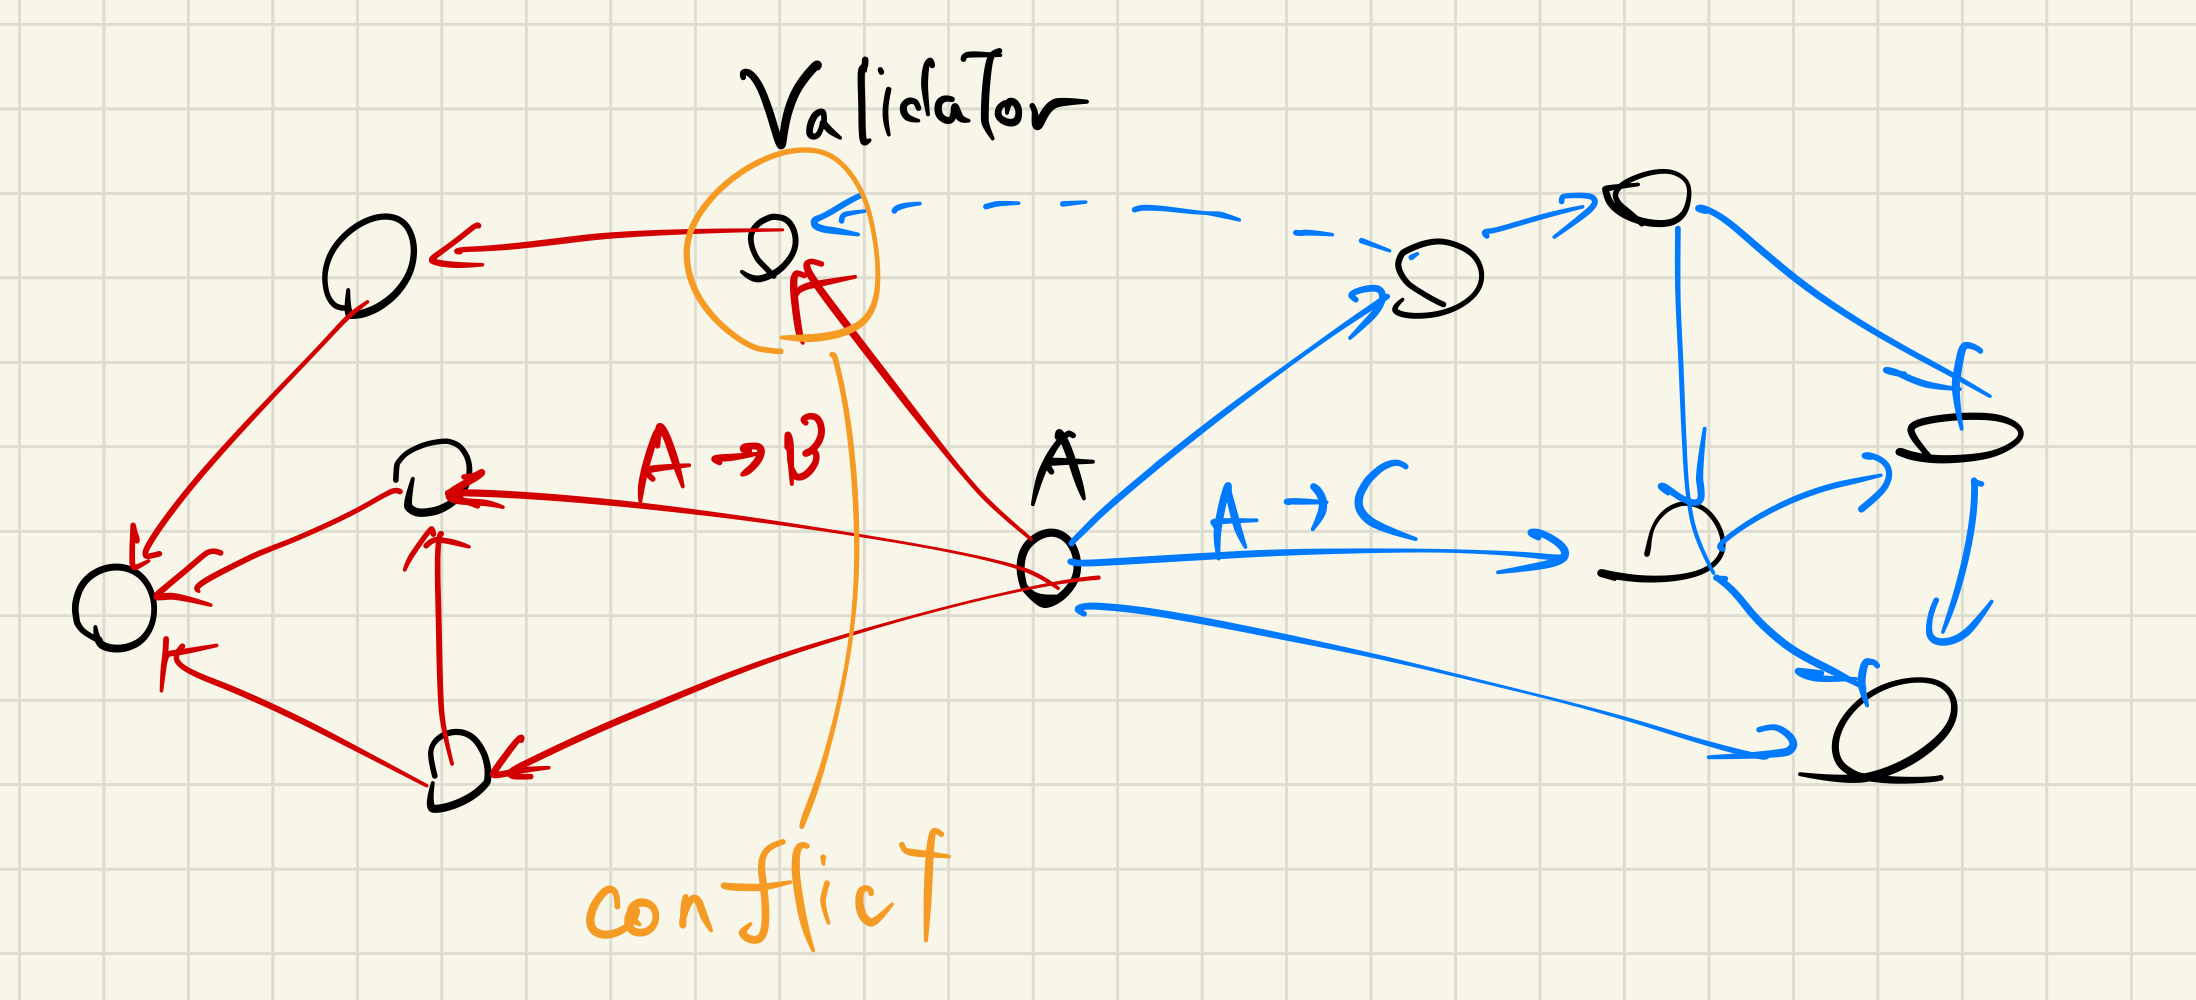 Validator
A → B
A
A → C
conflict